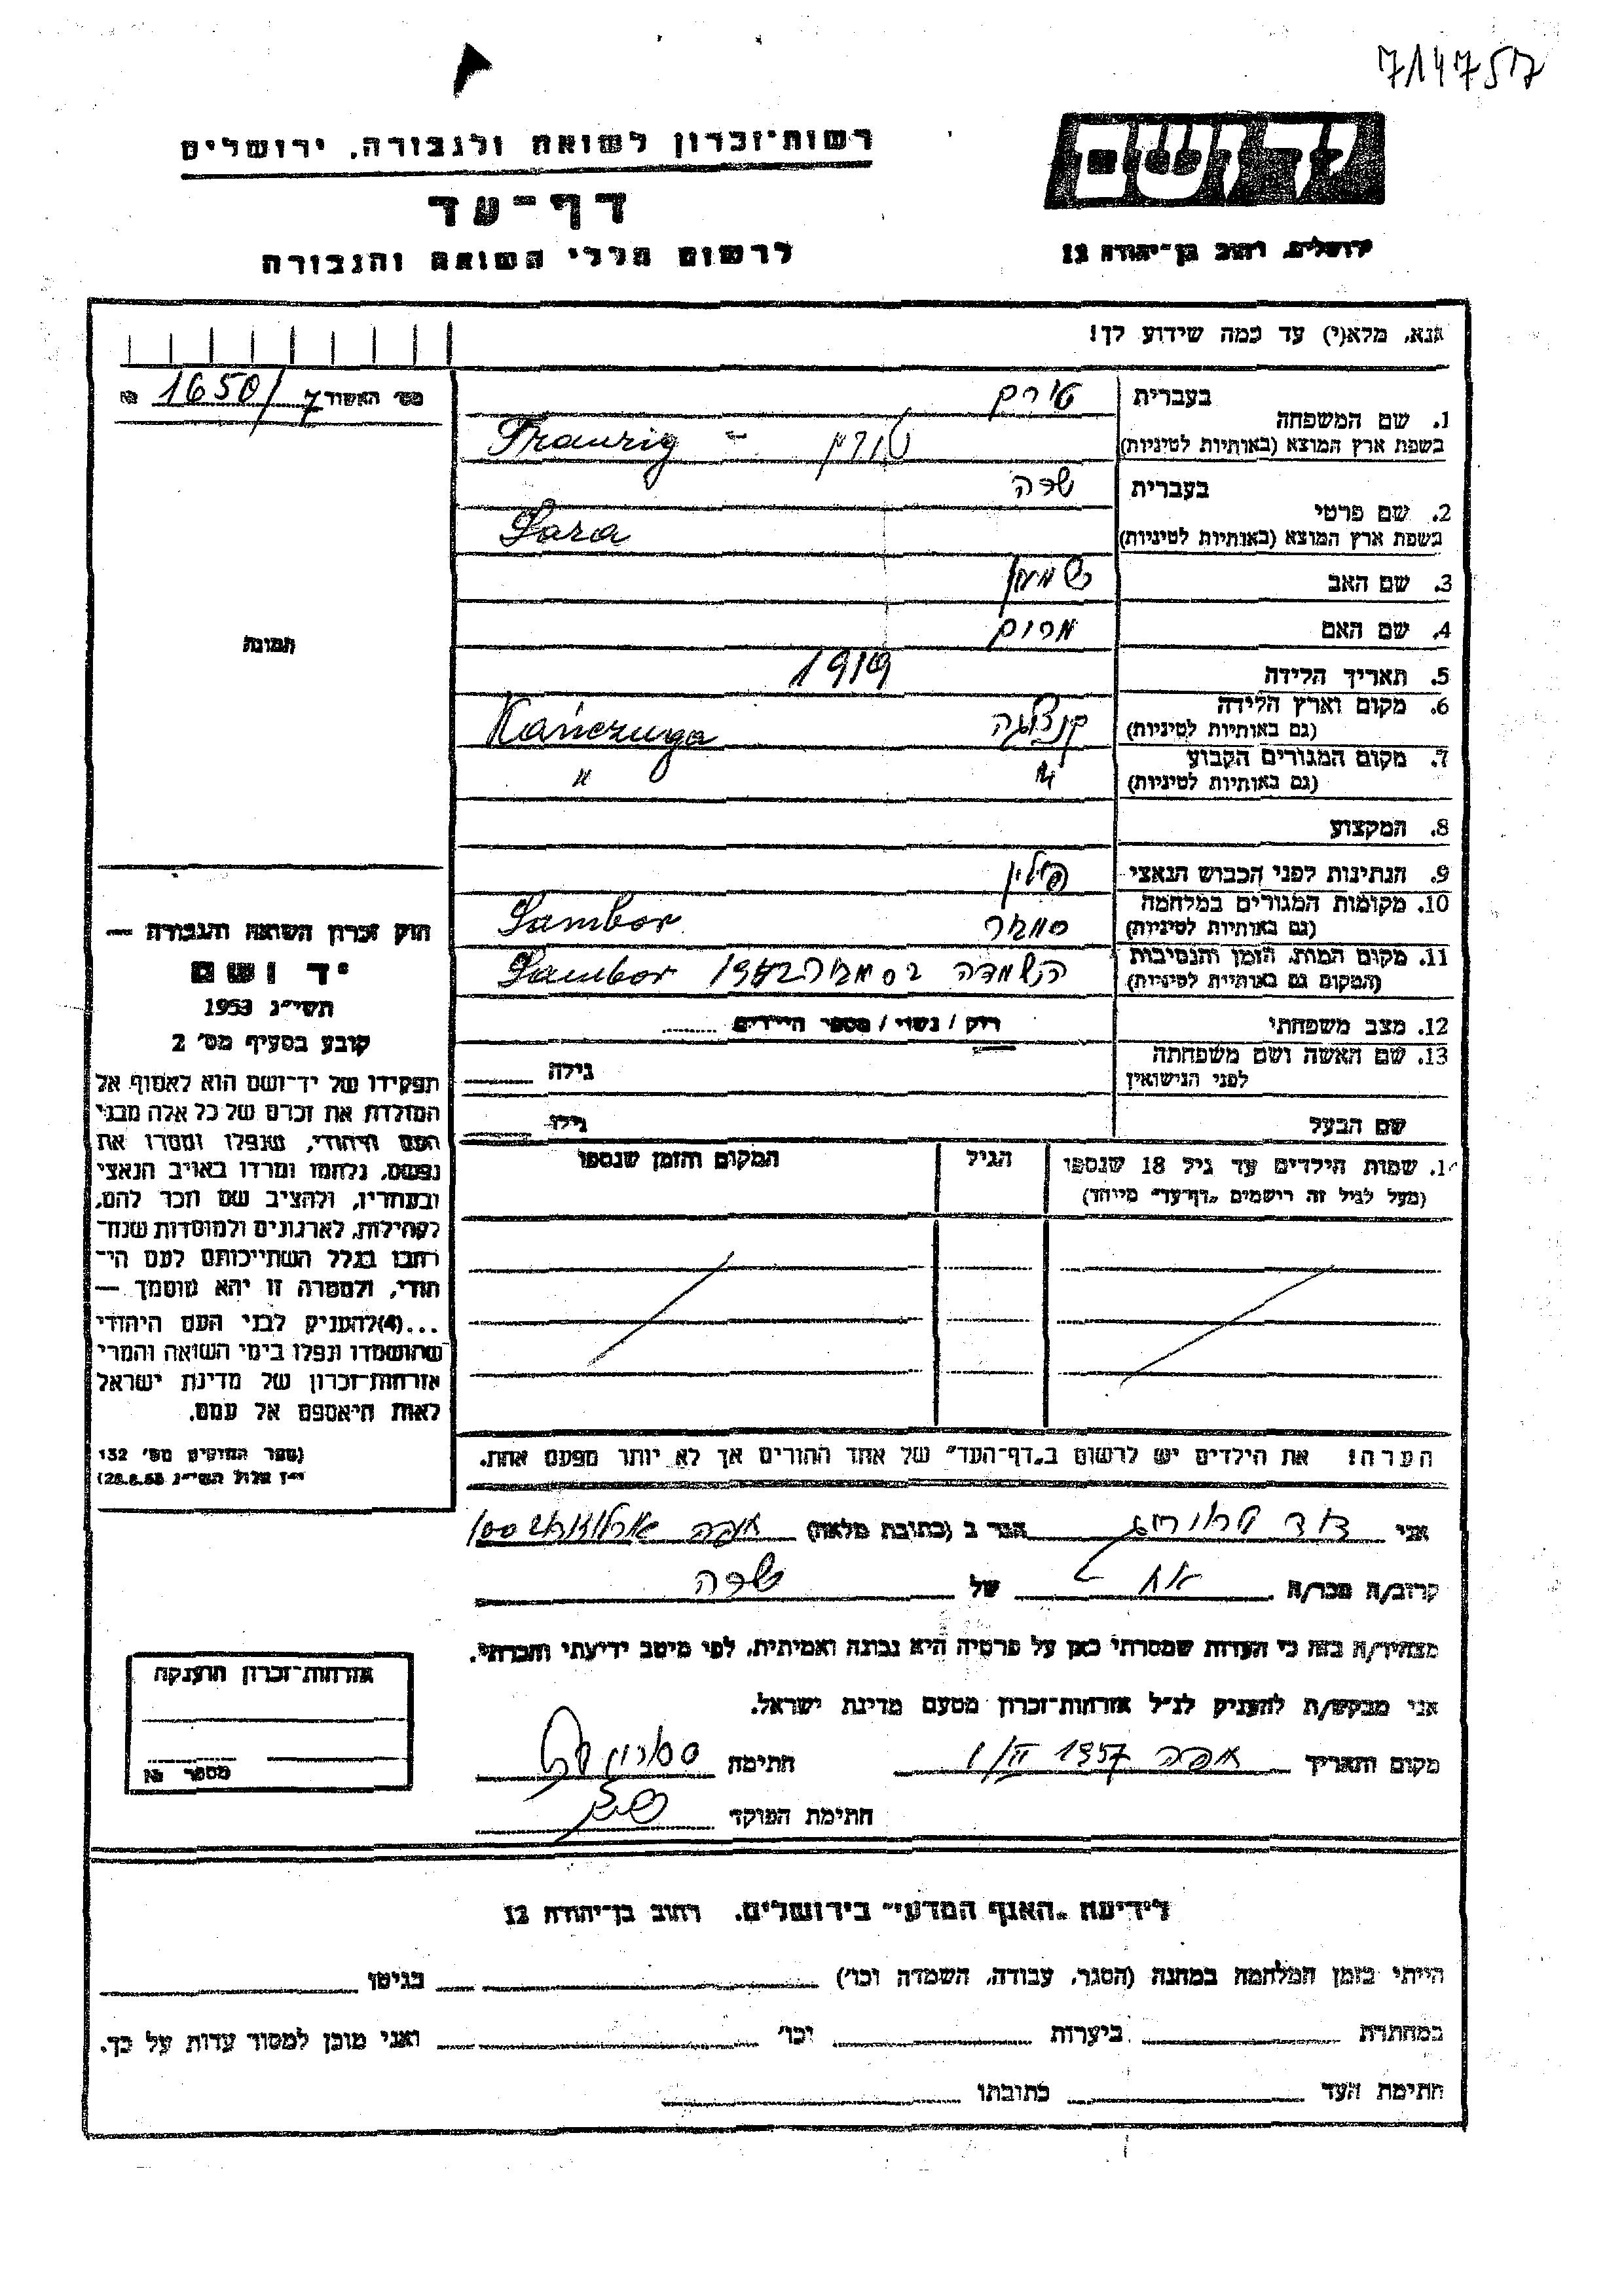 7147517
רשות־זכרון לשואה ולגבורה, ירושלים
יד ושם
דף־עד
ירושלים, רחוב בן־יהודה 12
לרשום חללי השואה והגבורה
אנא, מלא(י) עד כמה שידוע לך!
מס׳ האשור 1650/7 №
בעברית
1. שם המשפחה
בשפת ארץ המוצא (באותיות לטיניות) Traurig -
בעברית שרה
2. שם פרטי
בשפת ארץ המוצא (באותיות לטיניות) Sara
3. שם האב שמעון
4. שם האם מרים
תמונה
5. תאריך הלידה 1919
6. מקום וארץ הלידה קנצוגה Kańczuga
(גם באותיות לטיניות)
7. מקום המגורים הקבוע " "
(גם באותיות לטיניות)
8. המקצוע
9. הנתינות לפני הכבוש הנאצי פולין
10. מקומות המגורים במלחמה סמבור Sambor
(גם באותיות לטיניות)
11. מקום המות, הזמן והנסיבות הושמדה בסמבור 1942 Sambor
(המקום גם באותיות לטיניות)
12. מצב משפחתי רוק / נשוי / מספר הילדים
13. שם האשה ושם משפחתה
לפני הנישואין גילה
שם הבעל גילו
חוק זכרון השואה והגבורה —
יד ושם
תשי״ג 1953
קובע בסעיף מס׳ 2
תפקידו של יד־ושם הוא לאסוף אל
המולדת את זכרם של כל אלה מבני
העם היהודי, שנפלו ומסרו את
נפשם, נלחמו ומרדו באויב הנאצי
ובעוזריו, ולהציב שם וזכר להם,
לקהילות, לארגונים ולמוסדות שנח־
רבו בגלל השתייכותם לעם הי־
הודי, ולמטרה זו יהא מוסמך —
...(4) להעניק לבני העם היהודי
שהושמדו ונפלו בימי השואה והמרי
אזרחות־זכרון של מדינת ישראל
לאות היאספם אל עמם.
(ספר החוקים מס׳ 132
י״ז אלול תשי״ג 28.8.53)
שמות הילדים עד גיל 18 שנספו הגיל המקום והזמן שנספו
(מעל לגיל זה רישמים „דף־עד״ מיוחד)
הערה! את הילדים יש לרשום ב„דף־העד״ של אחד ההורים אך לא יותר מפעם אחת.
אני דוד טראוריג הגר ב (כתובת מלאה) חיפה ארלוזורוב 100
קרוב/ה מכר/ה אח של שרה
מצהיר/ה בזה כי העדות שמסרתי כאן על פרטיה היא נכונה ואמיתית, לפי מיטב ידיעתי והכרתי.
אני מבקש/ת להעניק לנ״ל אזרחות־זכרון מטעם מדינת ישראל.
מקום ותאריך חיפה 1957 1/II חתימה
חתימת הפוקד
אזרחות־זכרון הוענקה
מספר №
לידיעת „האגף המדעי״ בירושלים, רחוב בן־יהודה 12
הייתי בזמן המלחמה במחנה (הסגר, עבודה, השמדה וכו׳) בגיטו
במחתרת ביערות וכו׳ ואני מוכן למסור עדות על כך.
חתימת העד כתובתו